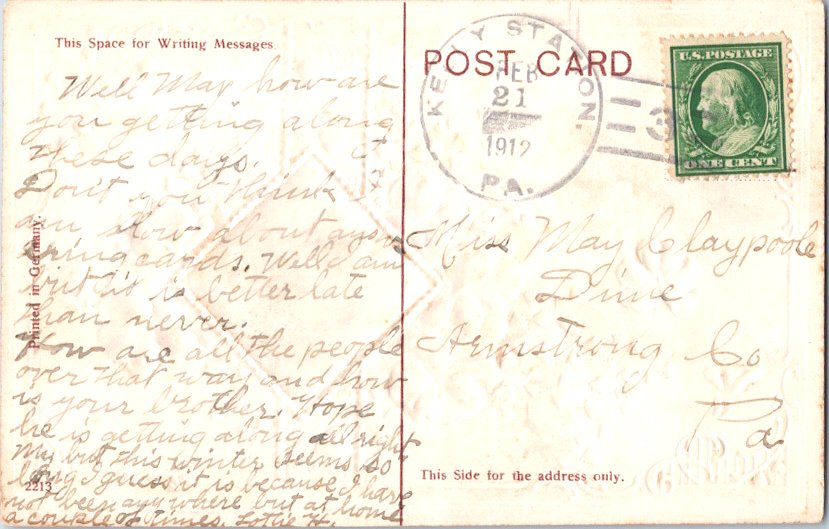 This Space for Writing Messages
Well May how are
you getting along
these days.
Don't you think I
am slow about answ
ering cards. Well I am
but it is better late
than never.
How are all the people
over that way and how
is your brother. Hope
he is getting along all right
My but this winter seems so
long I guess it is because I have
not been any where but at home
a couple of times. Lottie H.
Printed in Germany.
2213
POST CARD
KELLY STATION,
FEB
21
1912
PA.
U.S. POSTAGE
ONE CENT
Miss May Claypoole
Dime
Armstrong Co
Pa
This Side for the address only.